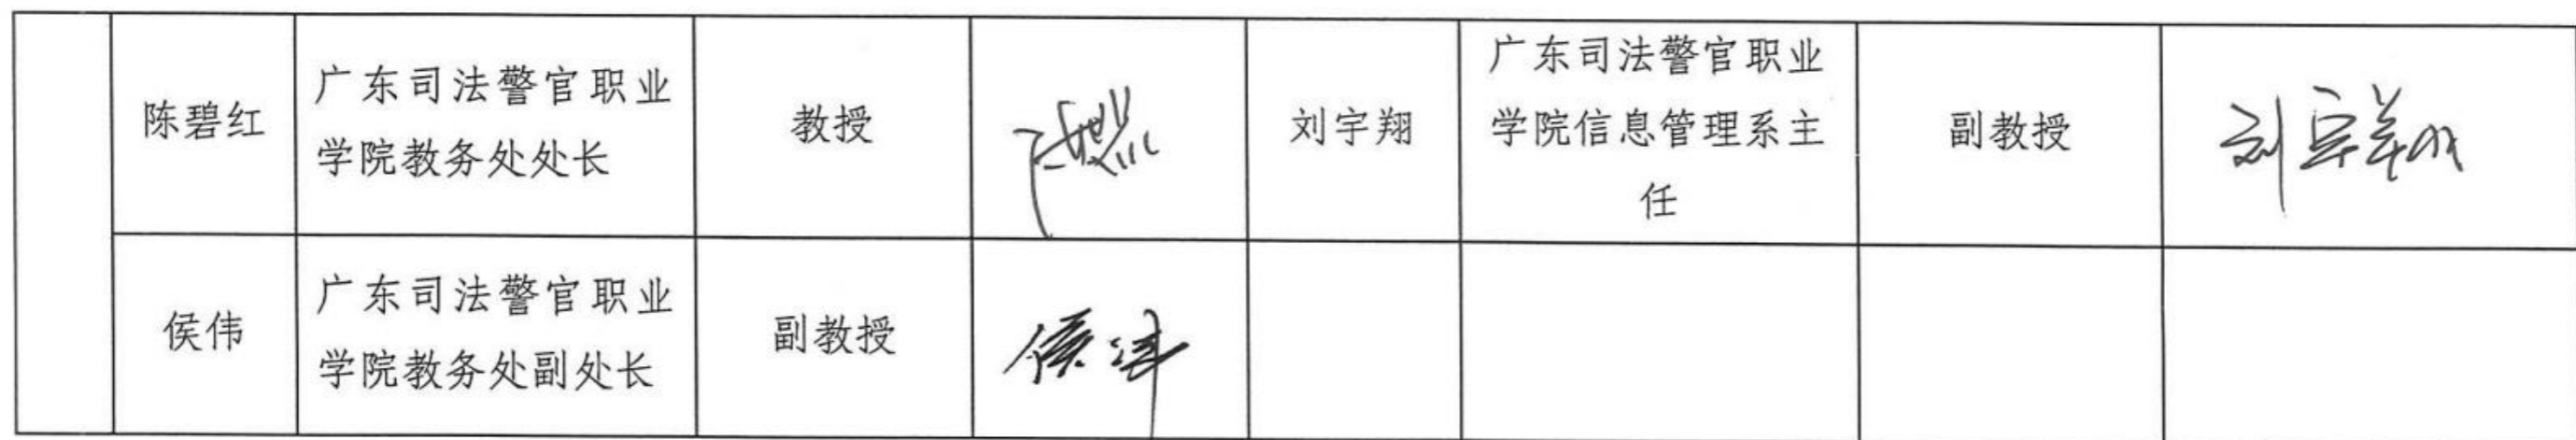 陈碧红
广东司法警官职业
学院教务处处长
教授
刘宇翔
广东司法警官职业
学院信息管理系主
任
副教授
刘宇翔
侯伟
广东司法警官职业
学院教务处副处长
副教授
侯伟